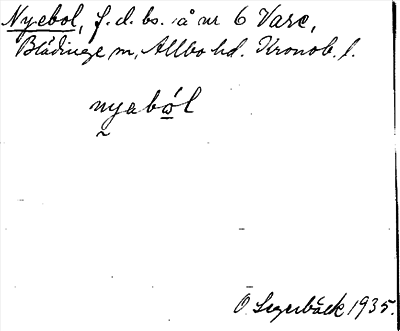 Nyebol, f. d. bs. å nr 6 Vare,
Blädinge sn, Allbo hd. Kronob. l.
nyaból
O. Segerbäck 1935.